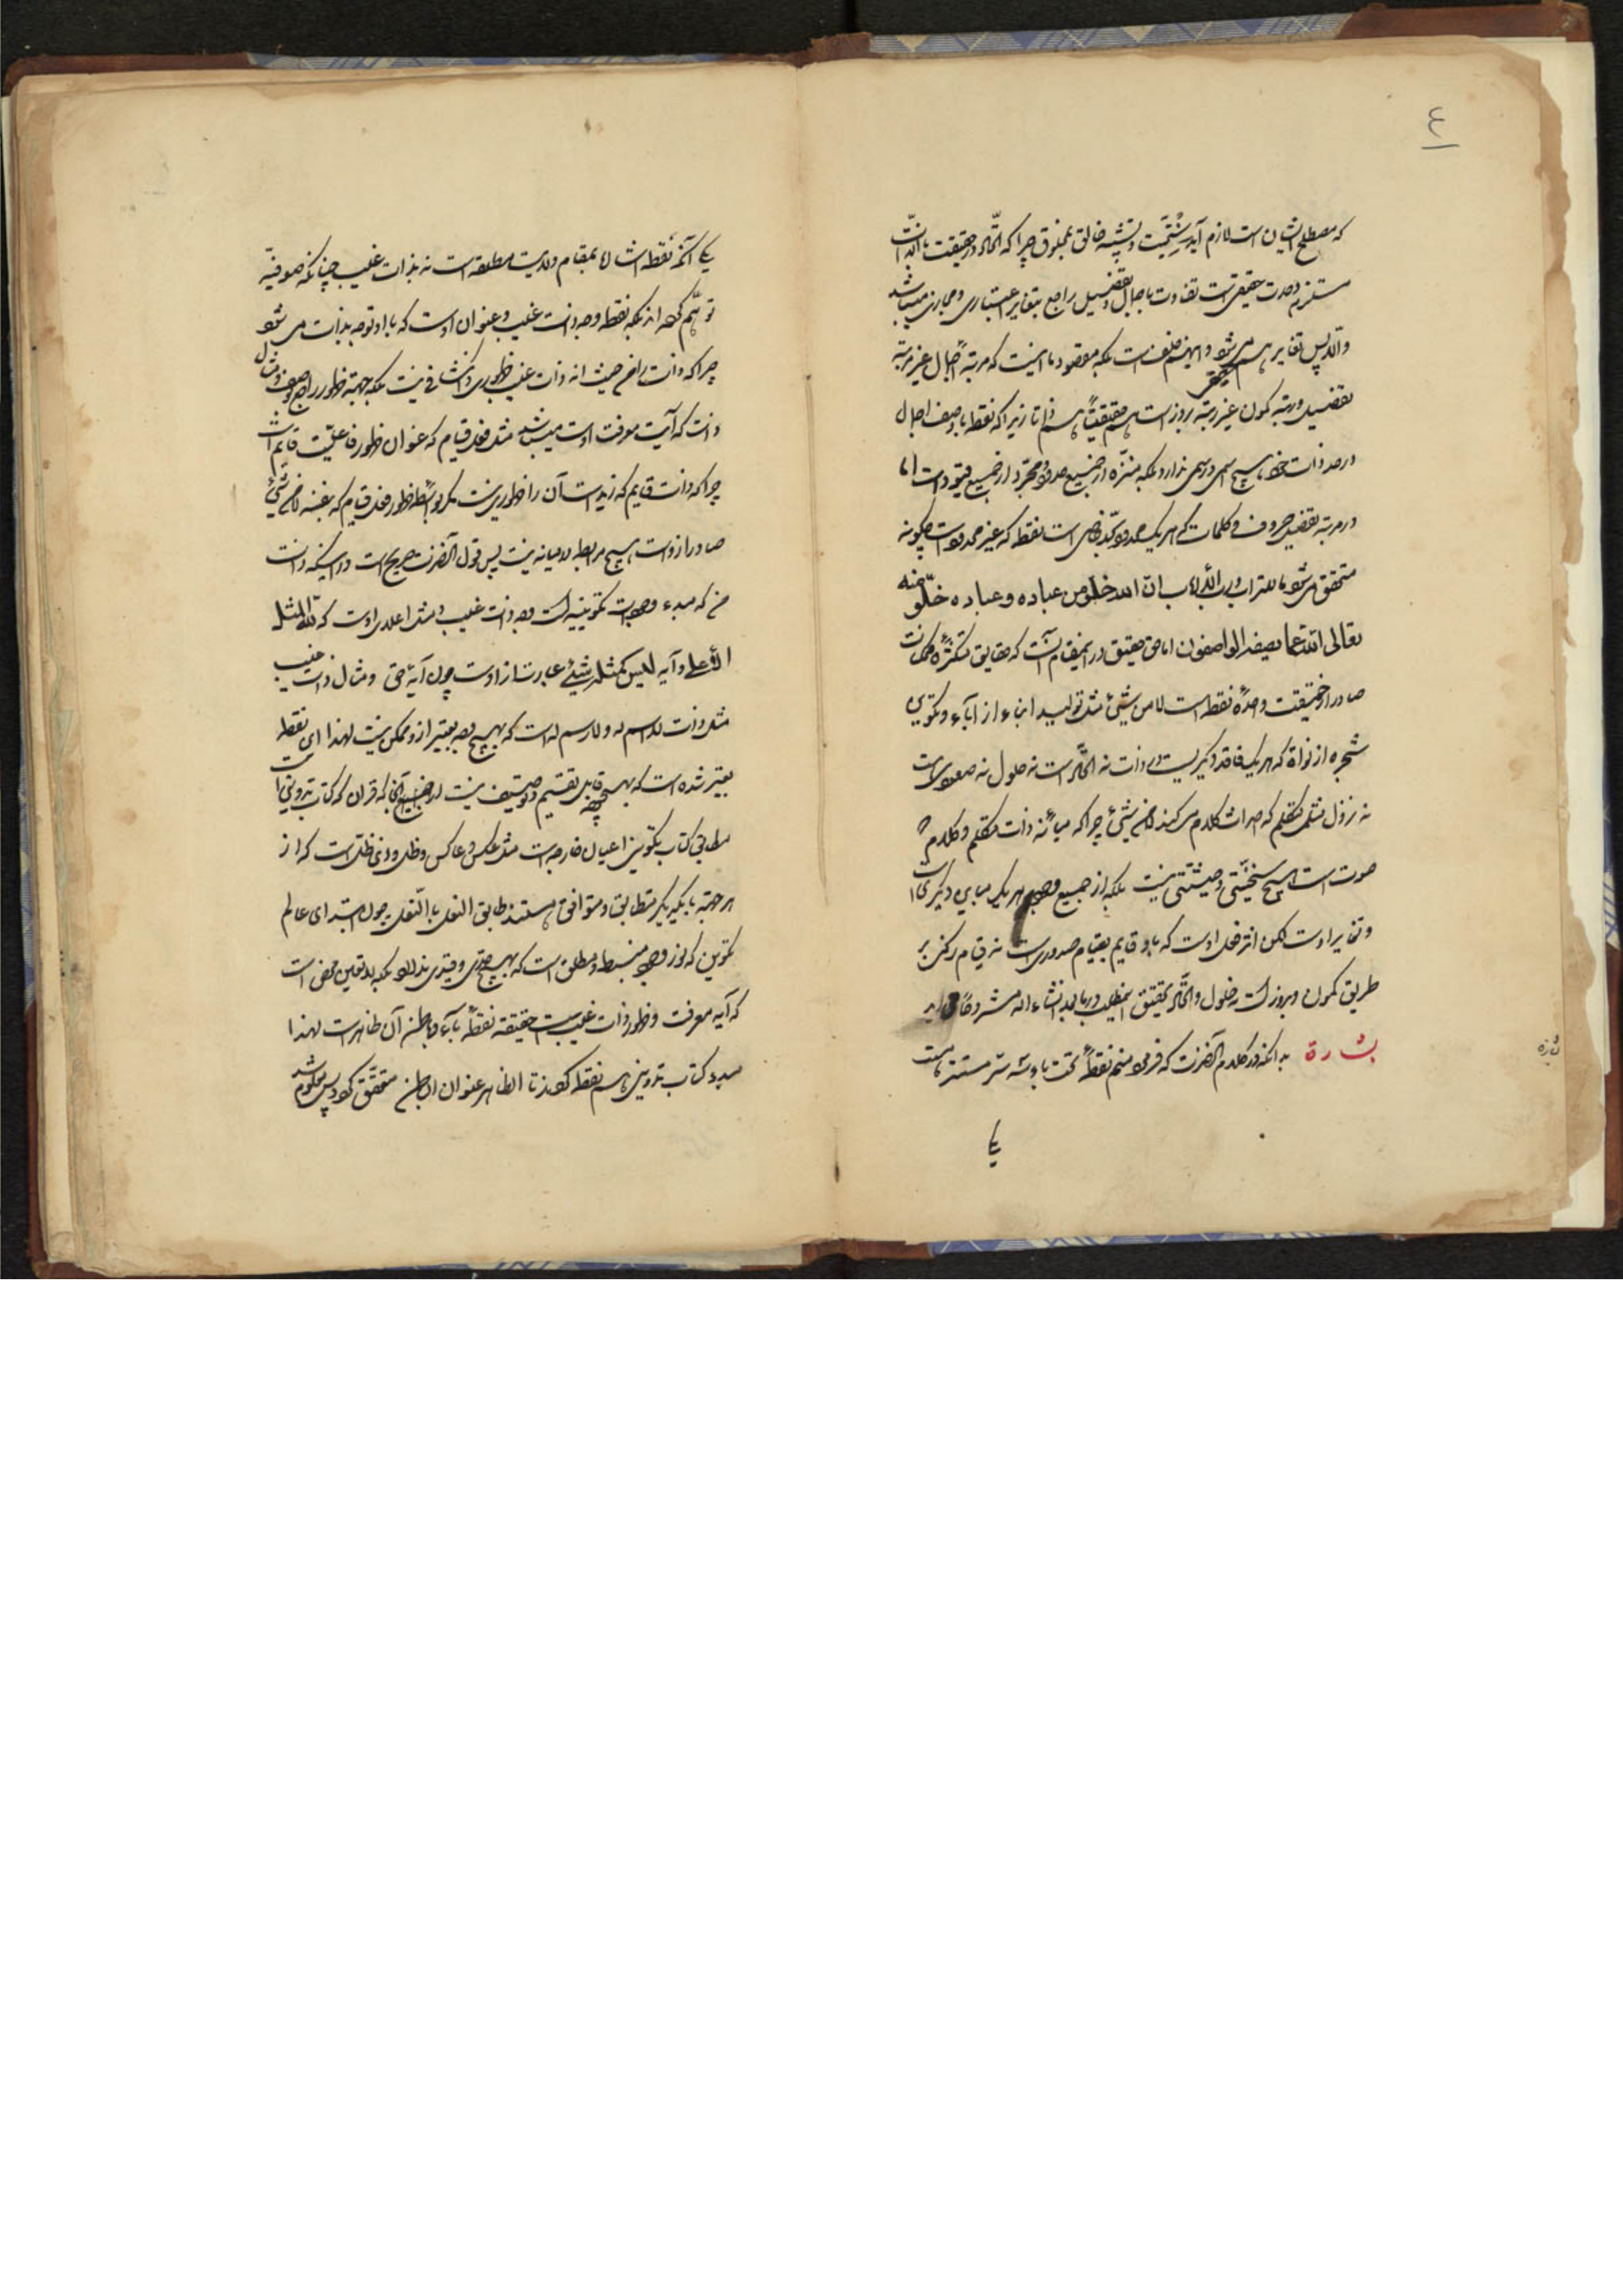 ٤
که مصطلح ایشان است لازم آید سنخیت و تشبیه خالق بمخلوق چرا که اتحاد در حقیقت بالذات
مستلزم وحدت حقیقی است تفاوت باجمال و تفصیل راجع بتغایر اعتباری و مجازی میباشد
والا پس تغایر هم میشود و اینهم خلف است بلکه مقصود ما اینست که مرتبه اجمال غیر مرتبه
تفصیل و رتبه کمون غیر رتبه بروز است هم حقیقتاً هم ذاتا زیرا که نقطه با وصف اجمال
در حد ذات خود هیچ اسمی و رسمی ندارد بلکه منزه از جمیع حدود و مجرد از جمیع قیود است اما
در مرتبه تفصیل حروف و کلمات که هر یک محدود بحد خاص است نقطه که غیر محدود است چگونه
متحقق میشود ما للتراب و رب الارباب ان الله خلو من عباده و عباده خلو منه
تعالی الله عما یصفه الواصفون اما حق حقیق در اینمقام آنست که حقایق متکثره کلمات
صادر از حقیقت واحدهٔ نقطه است لا من شیئ مثل تولید ابناء از آباء و تکوین
شجره از نواة که هر یک فاقد دیگریست در ذات نه اتحاد است نه حلول نه صعود است
نه نزول مثل متکلم که احداث کلام می کند لا من شیئ چرا که میانه ذات متکلم و کلام که
صوت است هیچ سنخیتی و حیثیتی نیست بلکه از جمیع وجوه هر یک مباین دیگری است
و مغایر اوست لکن اثر فعل اوست که باو قایم بقیام صدوری است نه قیام رکنی بر
طریق کمون و بروز است نه حلول و اتحاد تحقیق اینمطلب در باب انشاء الله مشروحاً
اشارة بدانکه در کلام آنحضرت که فرمود منم نقطهٔ تحت با دو سه سر مستتر هست
یکی
یکی آنکه نقطه اشاره بمقام ولایت مطلقه است نه بذات غیب چنانکه صوفیه
توهم کرده اند بلکه نقطه وجه ذات غیب و عنوان اوست که با او توجه بذات می شود
چرا که ذات را من حیث انه ذات غیب ظهوری و انکشافی نیست بلکه جهة ظهور راجع بوصف و مثال
ذات که آیت معرفت اوست میباشد مثل فعل قیام که عنوان ظهور فاعلیت قایم است
چرا که ذات قایم که زید است آن را ظهوری نیست مگر بواسطه ظهور فعل قیام که بنفسه لا من شیئ
صادر از اوست هیچ مرابطه در میانه نیست پس قول آنحضرت صریح است در اینکه ذات
من که مبدء وجودات تکوینیه است وجه ذات غیب و مثل اعلای اوست که لله المثل
الاعلی و آیه لیس کمثله شیئ عبارت از اوست چون آیهٔ حق و مثال ذات غیب
مثل ذات لا اسم له و لا رسم له است که بهیچ وجه تعبیر از و ممکن نیست لهذا ای نقطه
تعبیر شده است که بهیچوجه قابل تقسیم و توصیف نیست از آنجا که قران که کتاب تدوین است
مطابق کتاب تکوین اعیان خارجه است مثل عکس و عاکس و ظل و ذی ظل است که از
هر جهة با یکدیگر متطابق و متوافق هستند طابق النعل بالنعل چون ابتدای عالم
تکوین که نور وجود منبسط و مطلق است که بهیچ حدی و قیدی ندارد بلکه بلا تعین محض است
که آیه معرفت و ظهور ذات غیب است حقیقة نقطهٔ باء و باطن آن ظاهر است لهذا
مبدء کتاب تدوین هم نقطه کردند تا الظاهر عنوان الباطن متحقق گردد پس معلوم شد